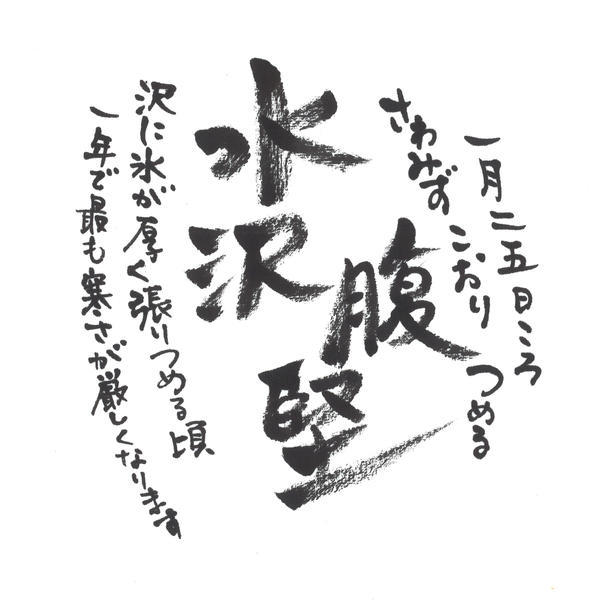 一月二五日ころ
さわみず こおり つめる
水沢腹堅
沢に氷が厚く張りつめる頃
一年で最も寒さが厳しくなります